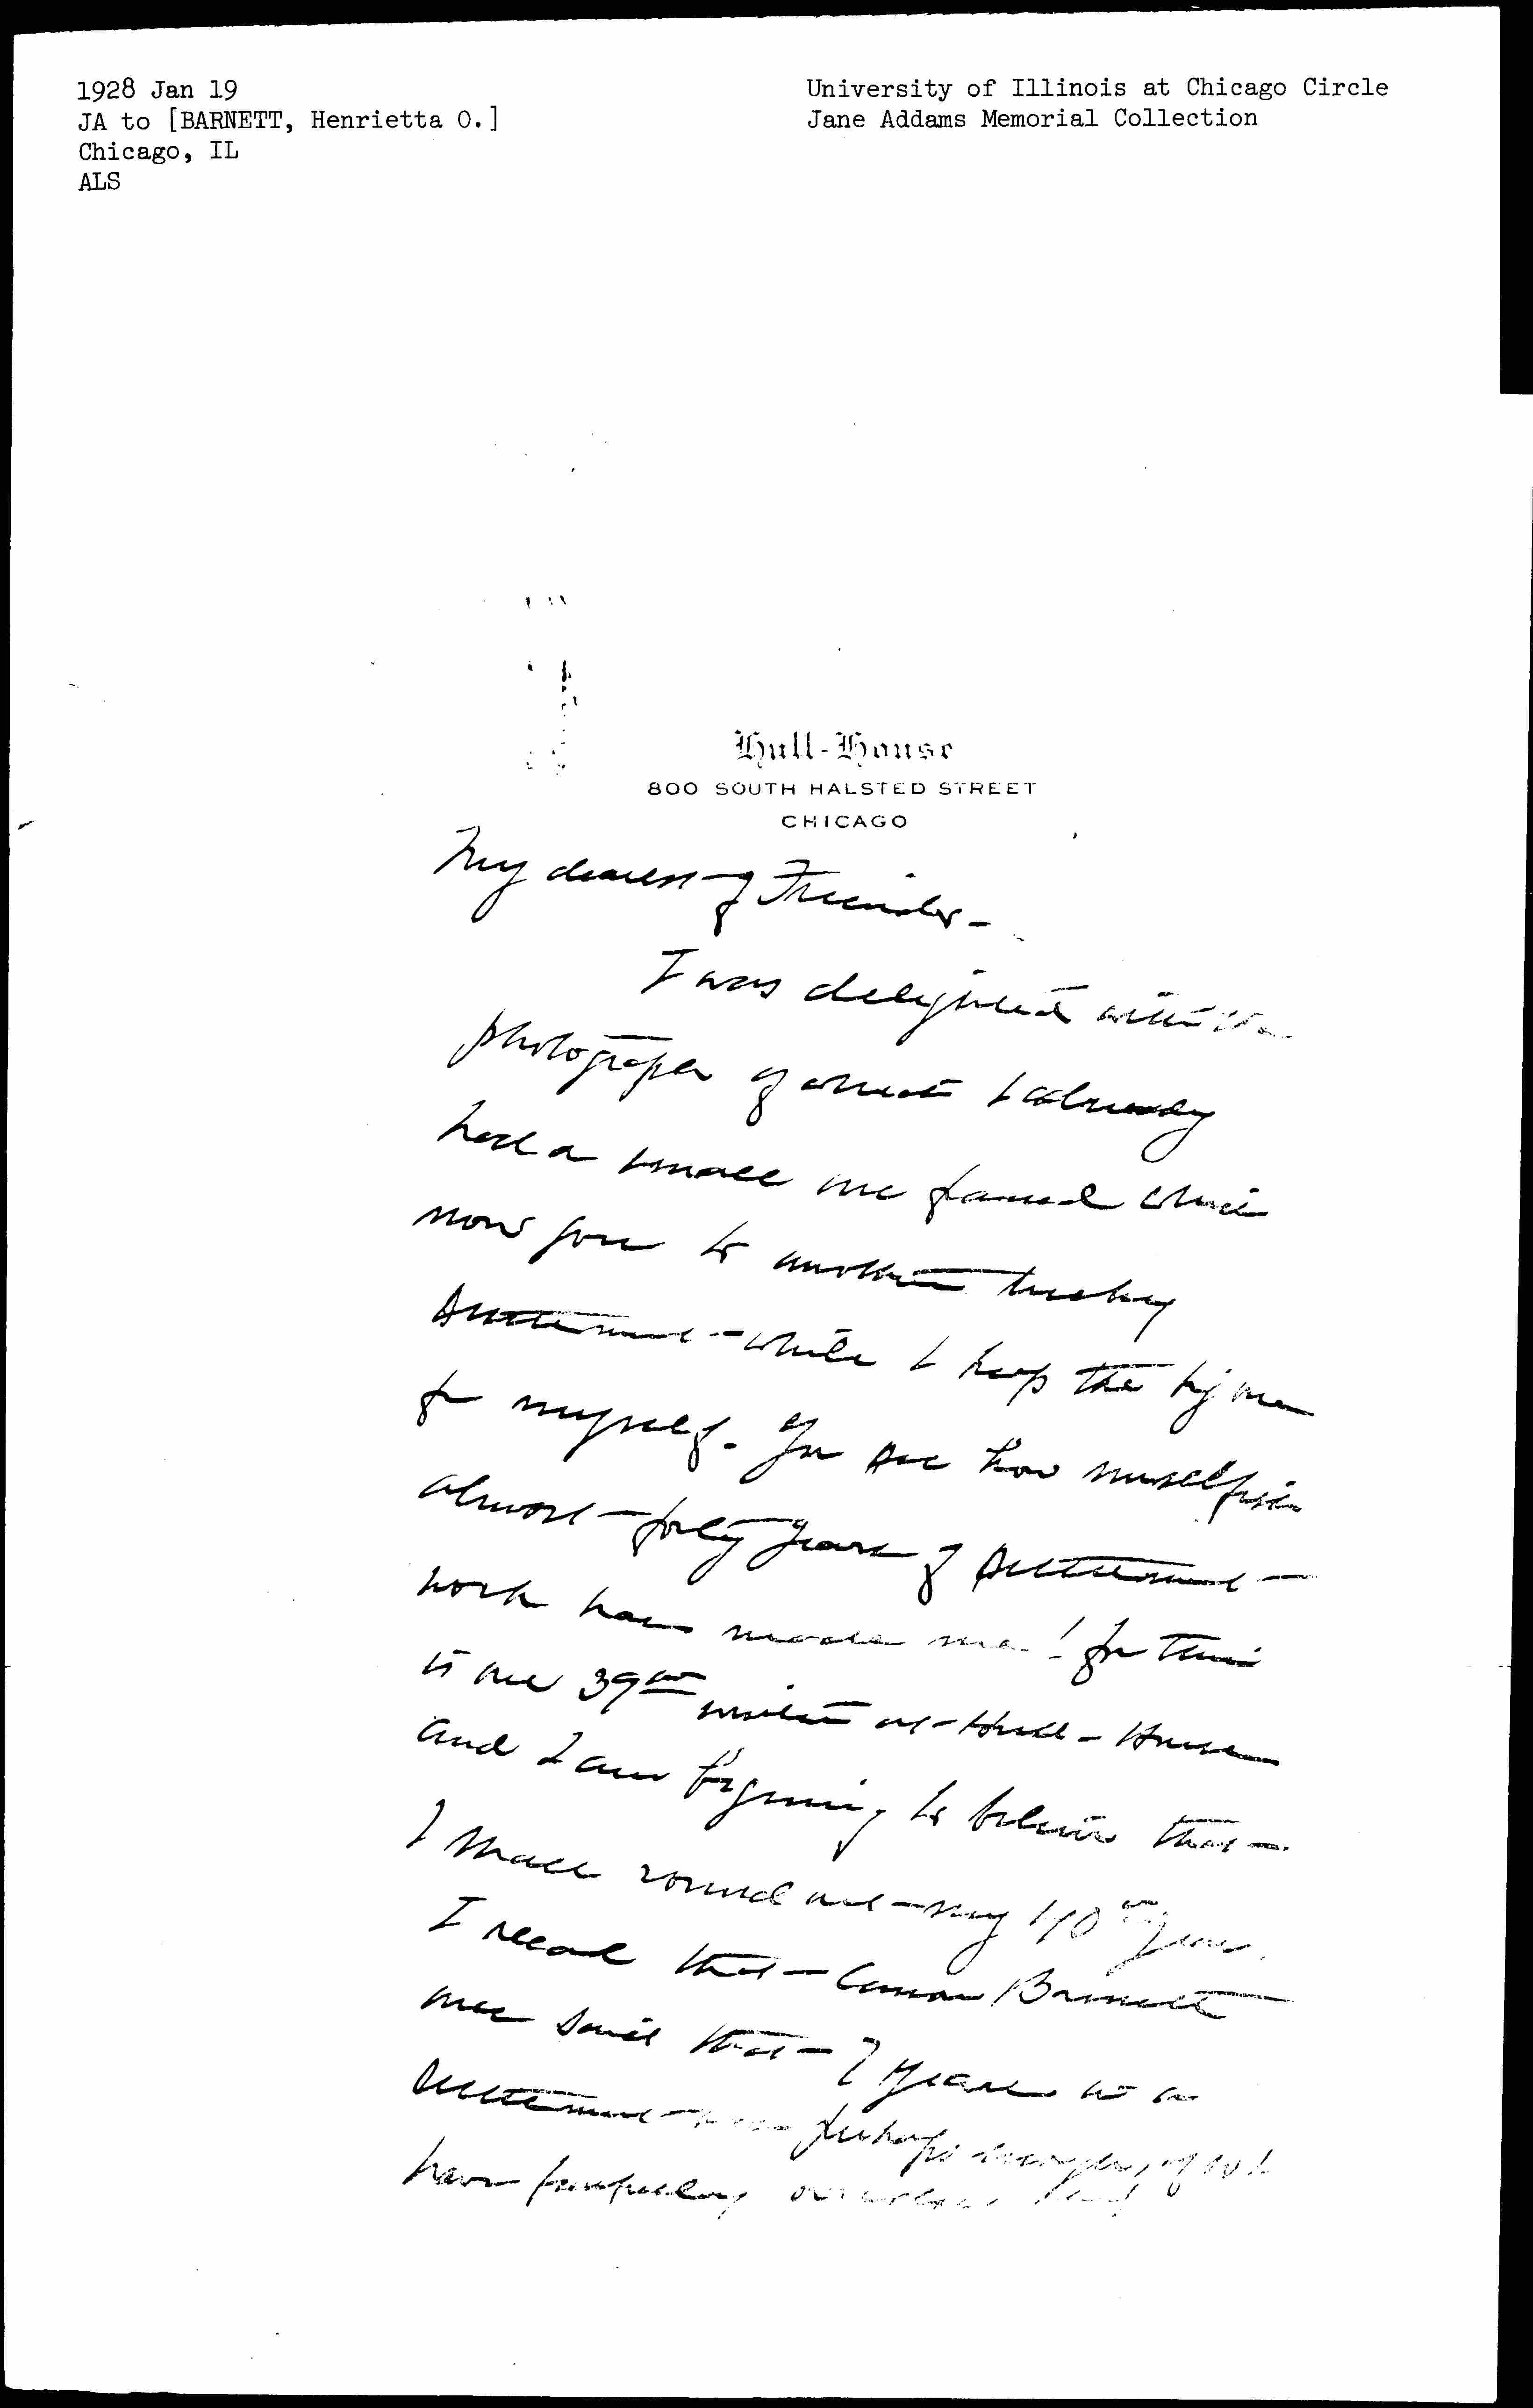 1928 Jan 19
JA to [BARNETT, Henrietta O.]
Chicago, IL
ALS
University of Illinois at Chicago Circle
Jane Addams Memorial Collection
Hull-House
800 SOUTH HALSTED STREET
CHICAGO
My dearest of Friends-
I was delighted with the
photograph of which I already
had a small one framed which
now goes to another lucky
settlement - while I keep the big one
for myself. You see how unselfish
almost forty years of settlement
work has made me! for this
is our 39th winter at Hull-House
and I am beginning to believe that
I shall round out my 40th year.
I recall that Canon Barnett
once said that 7 years in a
settlement was perhaps enough, if so I
have fearfully